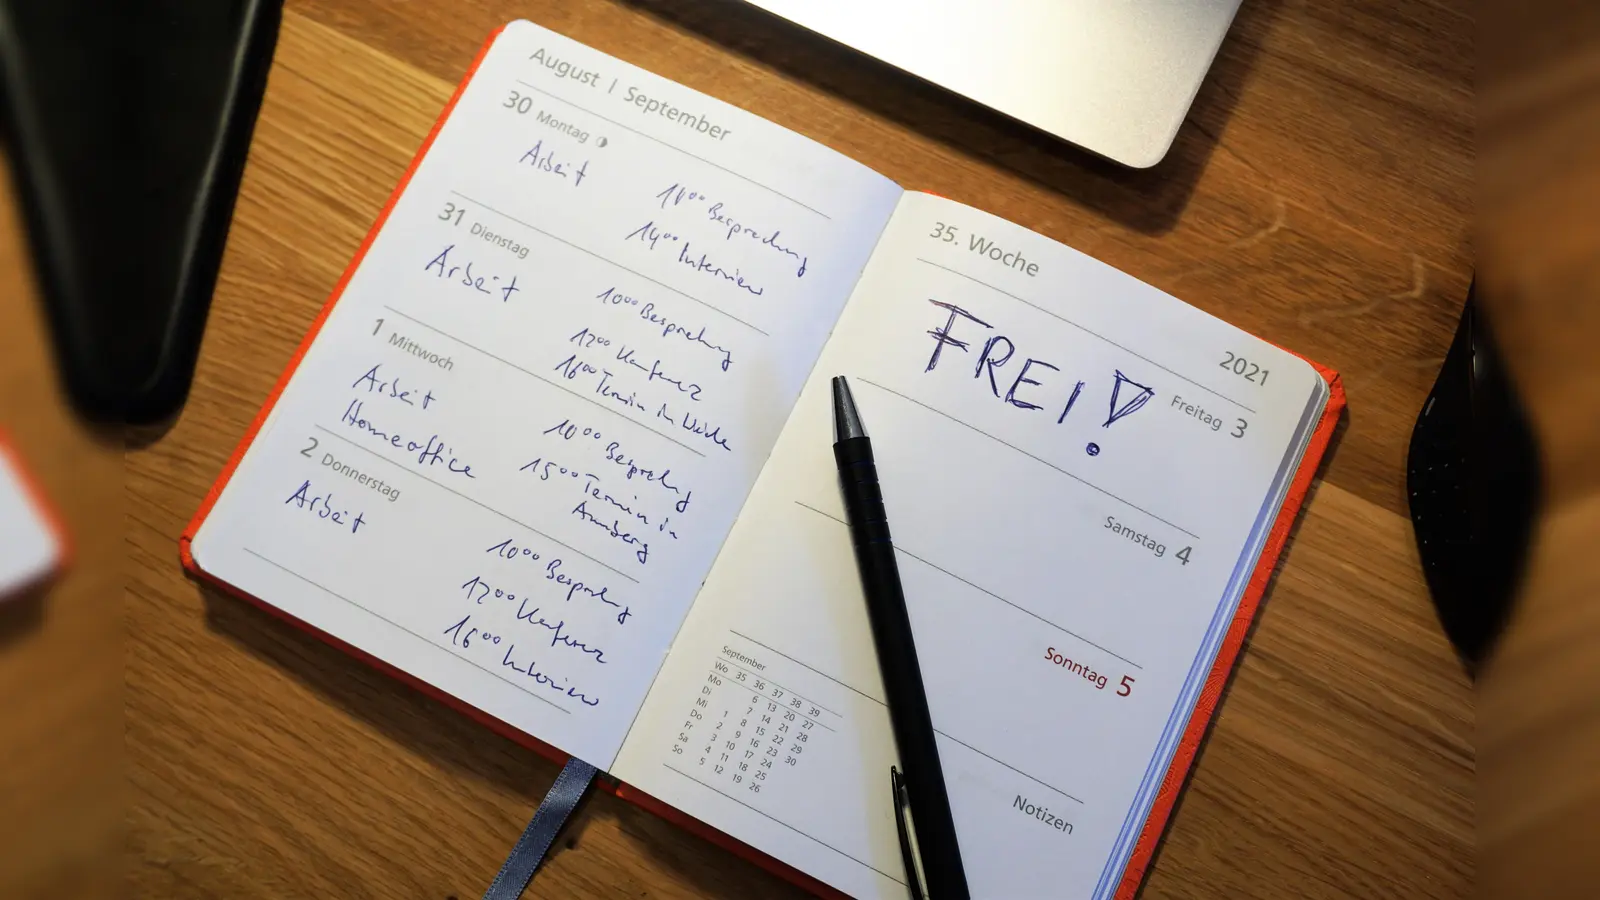 August | September
30 Montag
Arbeit
10⁰⁰ Besprechung
14⁰⁰ Interview
31 Dienstag
Arbeit
10⁰⁰ Besprechung
12⁰⁰ Konferenz
16⁰⁰ Termin in
1 Mittwoch
Arbeit
Homeoffice
10⁰⁰ Besprechung
15⁰⁰ Termin in
Amberg
2 Donnerstag
Arbeit
10⁰⁰ Besprechung
12⁰⁰ Konferenz
16⁰⁰ Interview
35. Woche
2021
FREI!
Freitag 3
Samstag 4
Sonntag 5
September
Wo 35 36 37 38 39
Mo 6 13 20 27
Di 7 14 21 28
Mi 1 8 15 22 29
Do 2 9 16 23 30
Fr 3 10 17 24
Sa 4 11 18 25
So 5 12 19 26
Notizen